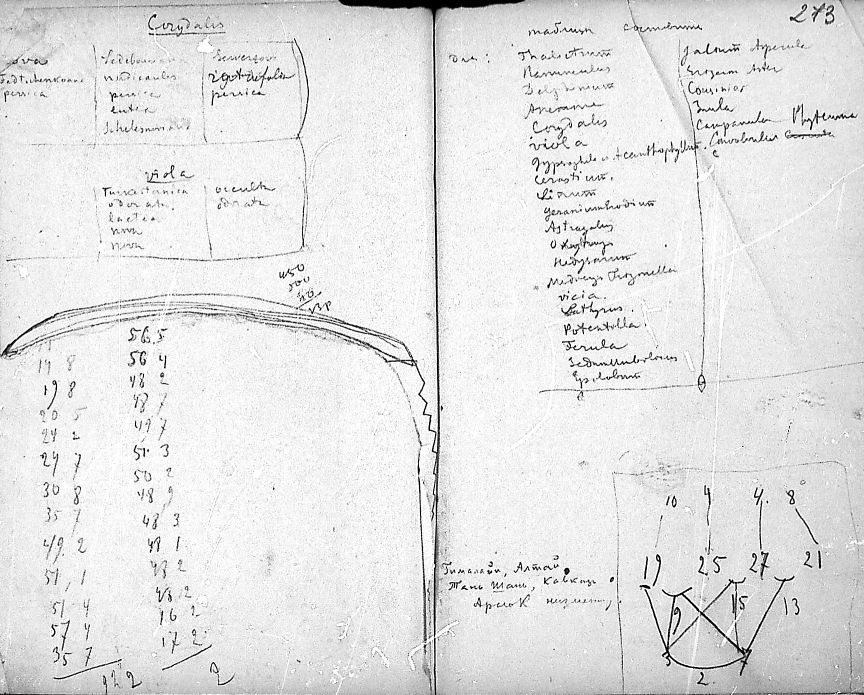 Corydalis
nova
Fedtschenkoana
persica
Ledebouriana
nudicaulis
persica
lutea
Sewerzovi
persica
viola
Turkestanica
odorata
lactea
nova
nova
occulta
odorata
450
500
14 8
19 8
20 5
24 2
24 7
30 8
35 7
49. 2
51, 1
51 4
57 4
35 7
122
56, 5
56 4
48 2
48 7
49 7
51. 3
50 2
48 9
48 3
48 1
48 2
48 2
16 2
17 2
2
273
таблицы
Для: Thalictrum
Ranunculus
Delphinium
Anemone
Corydalis
viola
Gypsophila и Acanthophyllum
Cerastium.
Linum
Geranium Erodium
Astragalus
Oxytropis
Hedysarum
Medicago Trigonella
vicia.
Lathyrus.
Potentilla.
Ferula
Sedum Umbilicus
Epilobium
Galium Asperula
Erigeron Aster
Cousinia
Inula
Campanula Phyteuma
Convolvulus
10 4 4. 8
19 25 27 21
9 15 13
3 7
2.
Гималаи, Алтай,
Тянь Шань, Кавказ